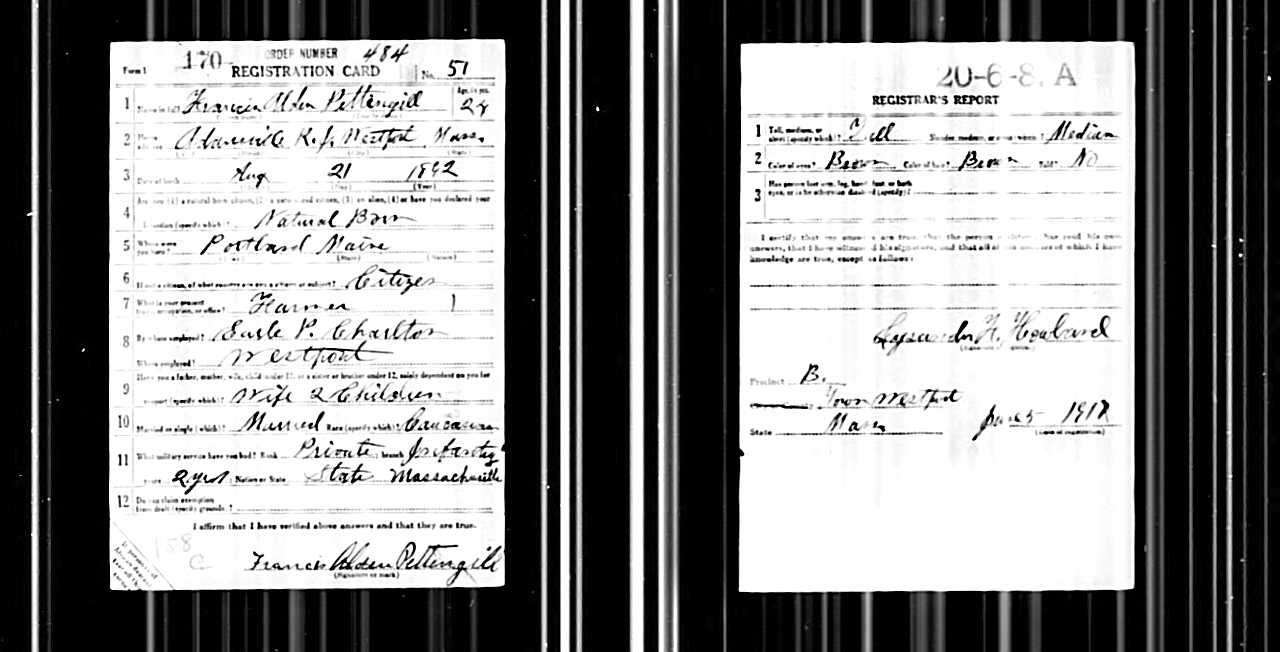 170 ORDER NUMBER 484
Form 1 REGISTRATION CARD No. 51
1 Name in full Francis Alden Pettengill Age, in yrs. 24
2 Home address Adamsville R.f. Westport Mass.
3 Date of birth Aug 21 1892
(Month) (Day) (Year)
4 Are you (1) a natural born citizen, (2) a naturalized citizen, (3) an alien, (4) or have you declared your
intention (specify which)? Natural Born
5 Where were you born? Portland Maine
(Town) (State) (Nation)
6 If not a citizen, of what country are you a citizen or subject? Citizen
7 What is your present trade, occupation, or office? Farmer 1
8 By whom employed? Earle P. Charlton
Where employed? Westport
9 Have you a father, mother, wife, child under 12, or a sister or brother under 12, solely dependent on you for
support (specify which)? Wife 2 Children
10 Married or single (which)? Married Race (specify which)? Caucasian
11 What military service have you had? Rank Private ; branch Infantry
years 2 yrs ; Nation or State State Massachusetts
12 Do you claim exemption from draft (specify grounds)?
I affirm that I have verified above answers and that they are true.
158
C
Francis Alden Pettengill
(Signature or mark)
20-6-8. A
REGISTRAR'S REPORT
1 Tall, medium, or short (specify which)? Tall Slender, medium, or stout (which)? Median
2 Color of eyes? Brown Color of hair? Brown Bald? No
3 Has person lost arm, leg, hand, foot, or both eyes, or is he otherwise disabled (specify)?
I certify that my answers are true, that the person registered has read his own
answers, that I have witnessed his signature, and that all of his answers of which I have
knowledge are true, except as follows:
Lysander F. Howland
(Signature of registrar)
Precinct B.
Town Westport
State Mass June 5 1917
(Date of registration)